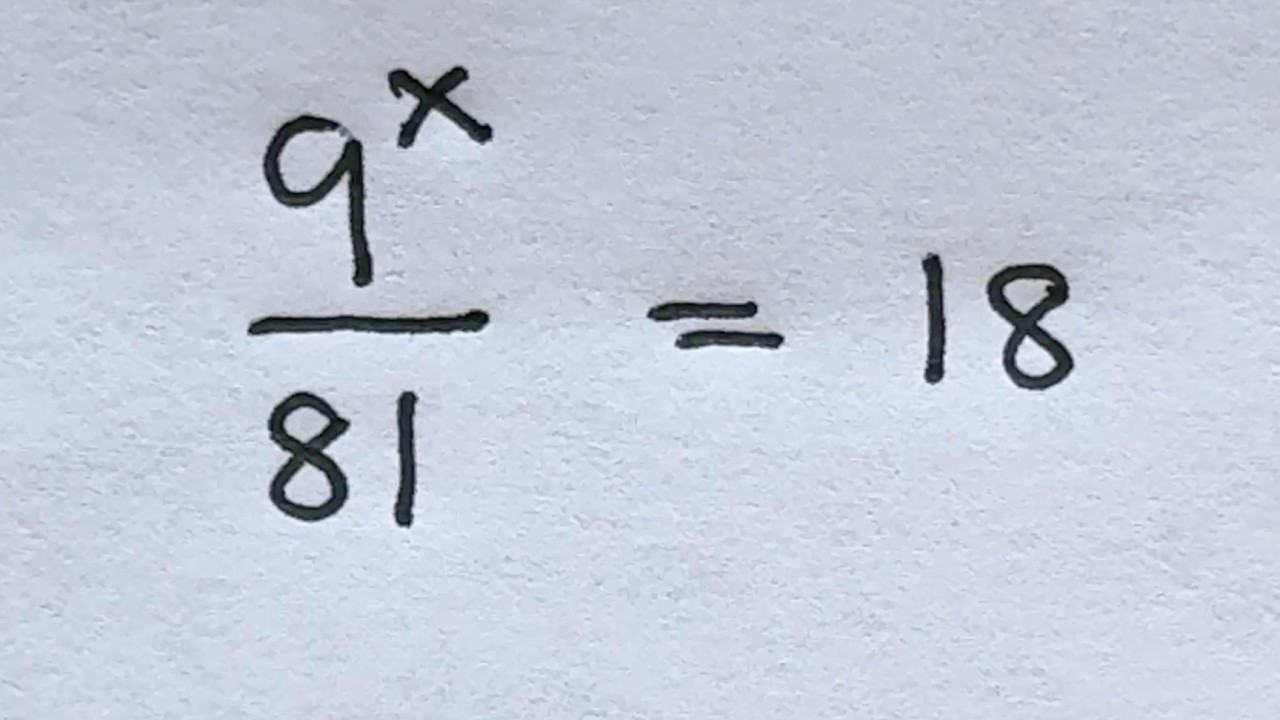 9^x/81 = 18